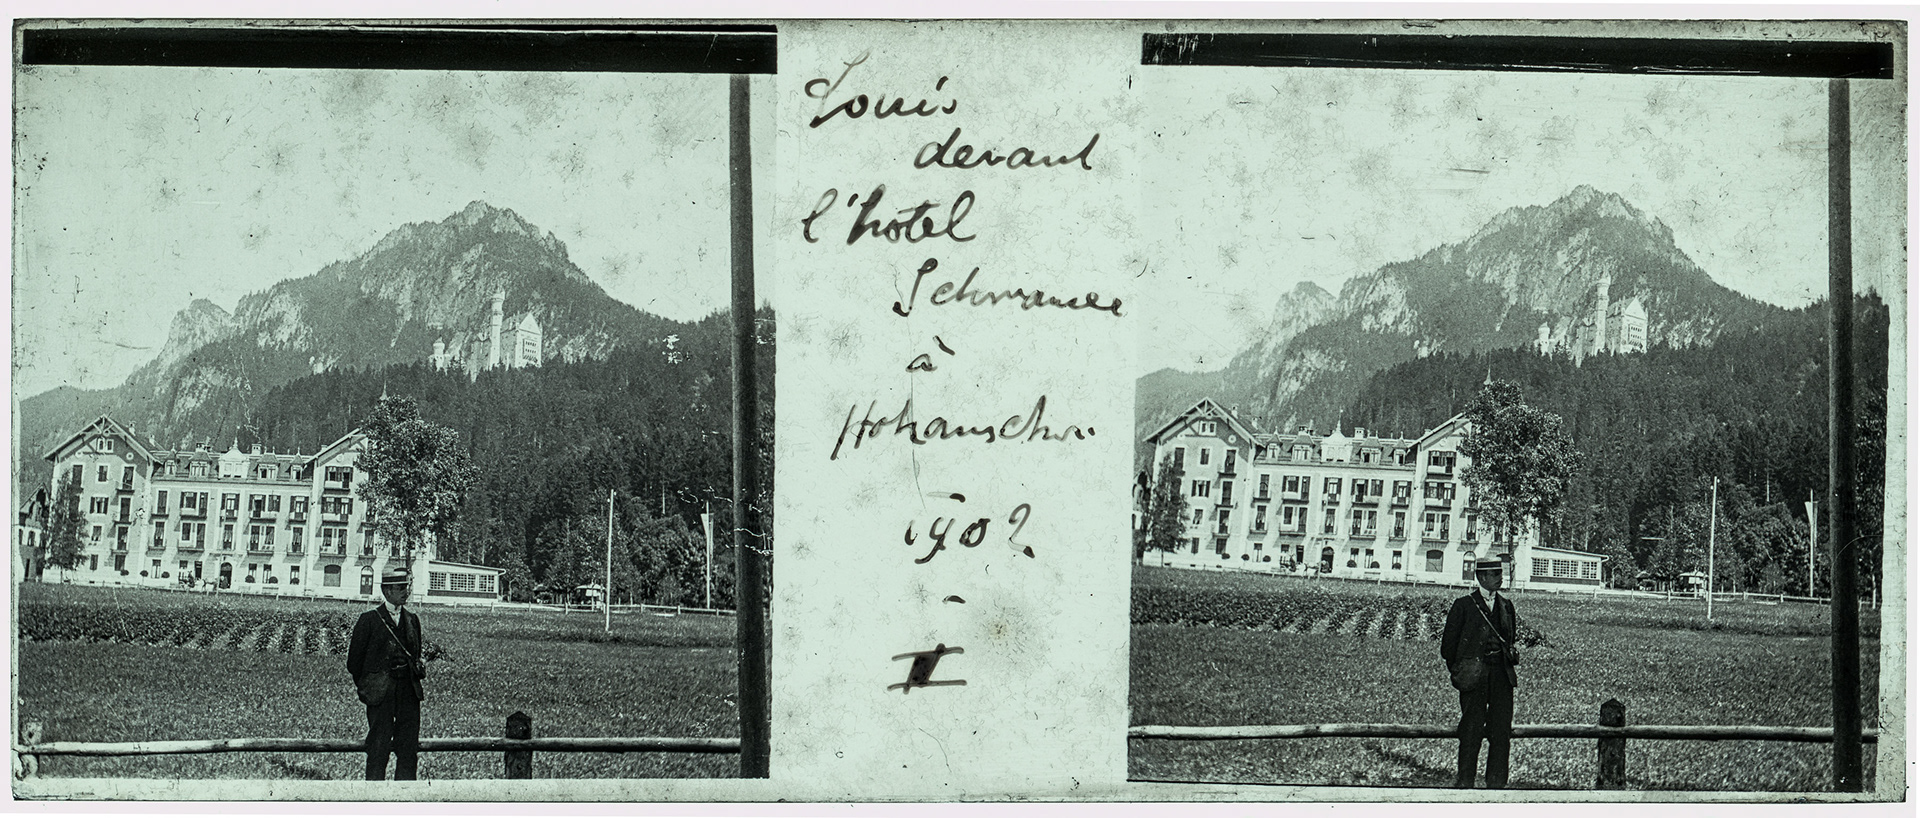 Louis
devant
l'hotel
Schwansee
à
Hohanschw.
1902
-
II